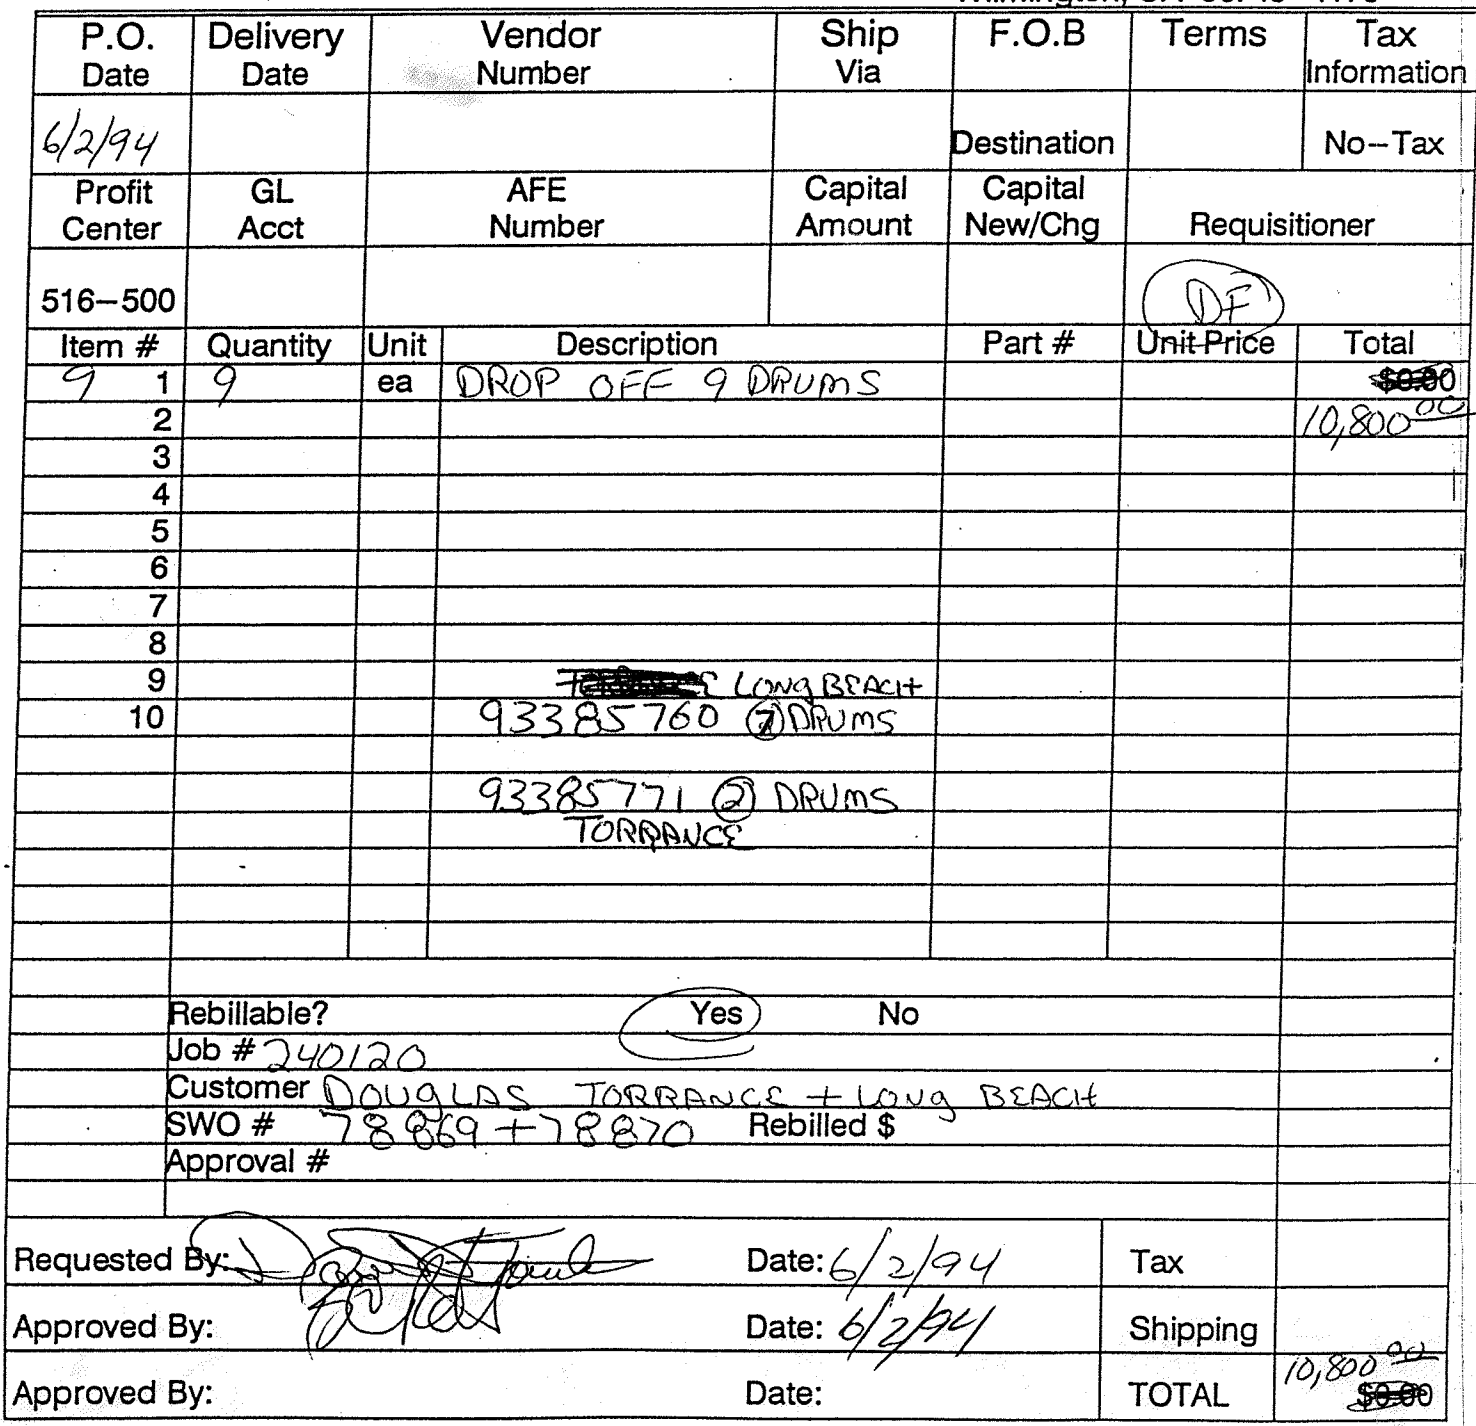 P.O. Delivery Vendor Ship F.O.B Terms Tax
Date Date Number Via Information
6/2/94 Destination No--Tax
Profit GL AFE Capital Capital
Center Acct Number Amount New/Chg Requisitioner
516-500 DF
Item # Quantity Unit Description Part # Unit Price Total
9 1 9 ea DROP OFF 9 DRUMS $0.00
2 10,800.00
3
4
5
6
7
8
9 LONG BEACH
10 93385760 7 DRUMS
93385771 2 DRUMS
TORRANCE
Rebillable? Yes No
Job # 240120
Customer DOUGLAS TORRANCE + LONG BEACH
SWO # 78869 + 78870 Rebilled $
Approval #
Requested By: Date: 6/2/94 Tax
Approved By: Date: 6/2/94 Shipping
10,800.00
Approved By: Date: TOTAL $0.00